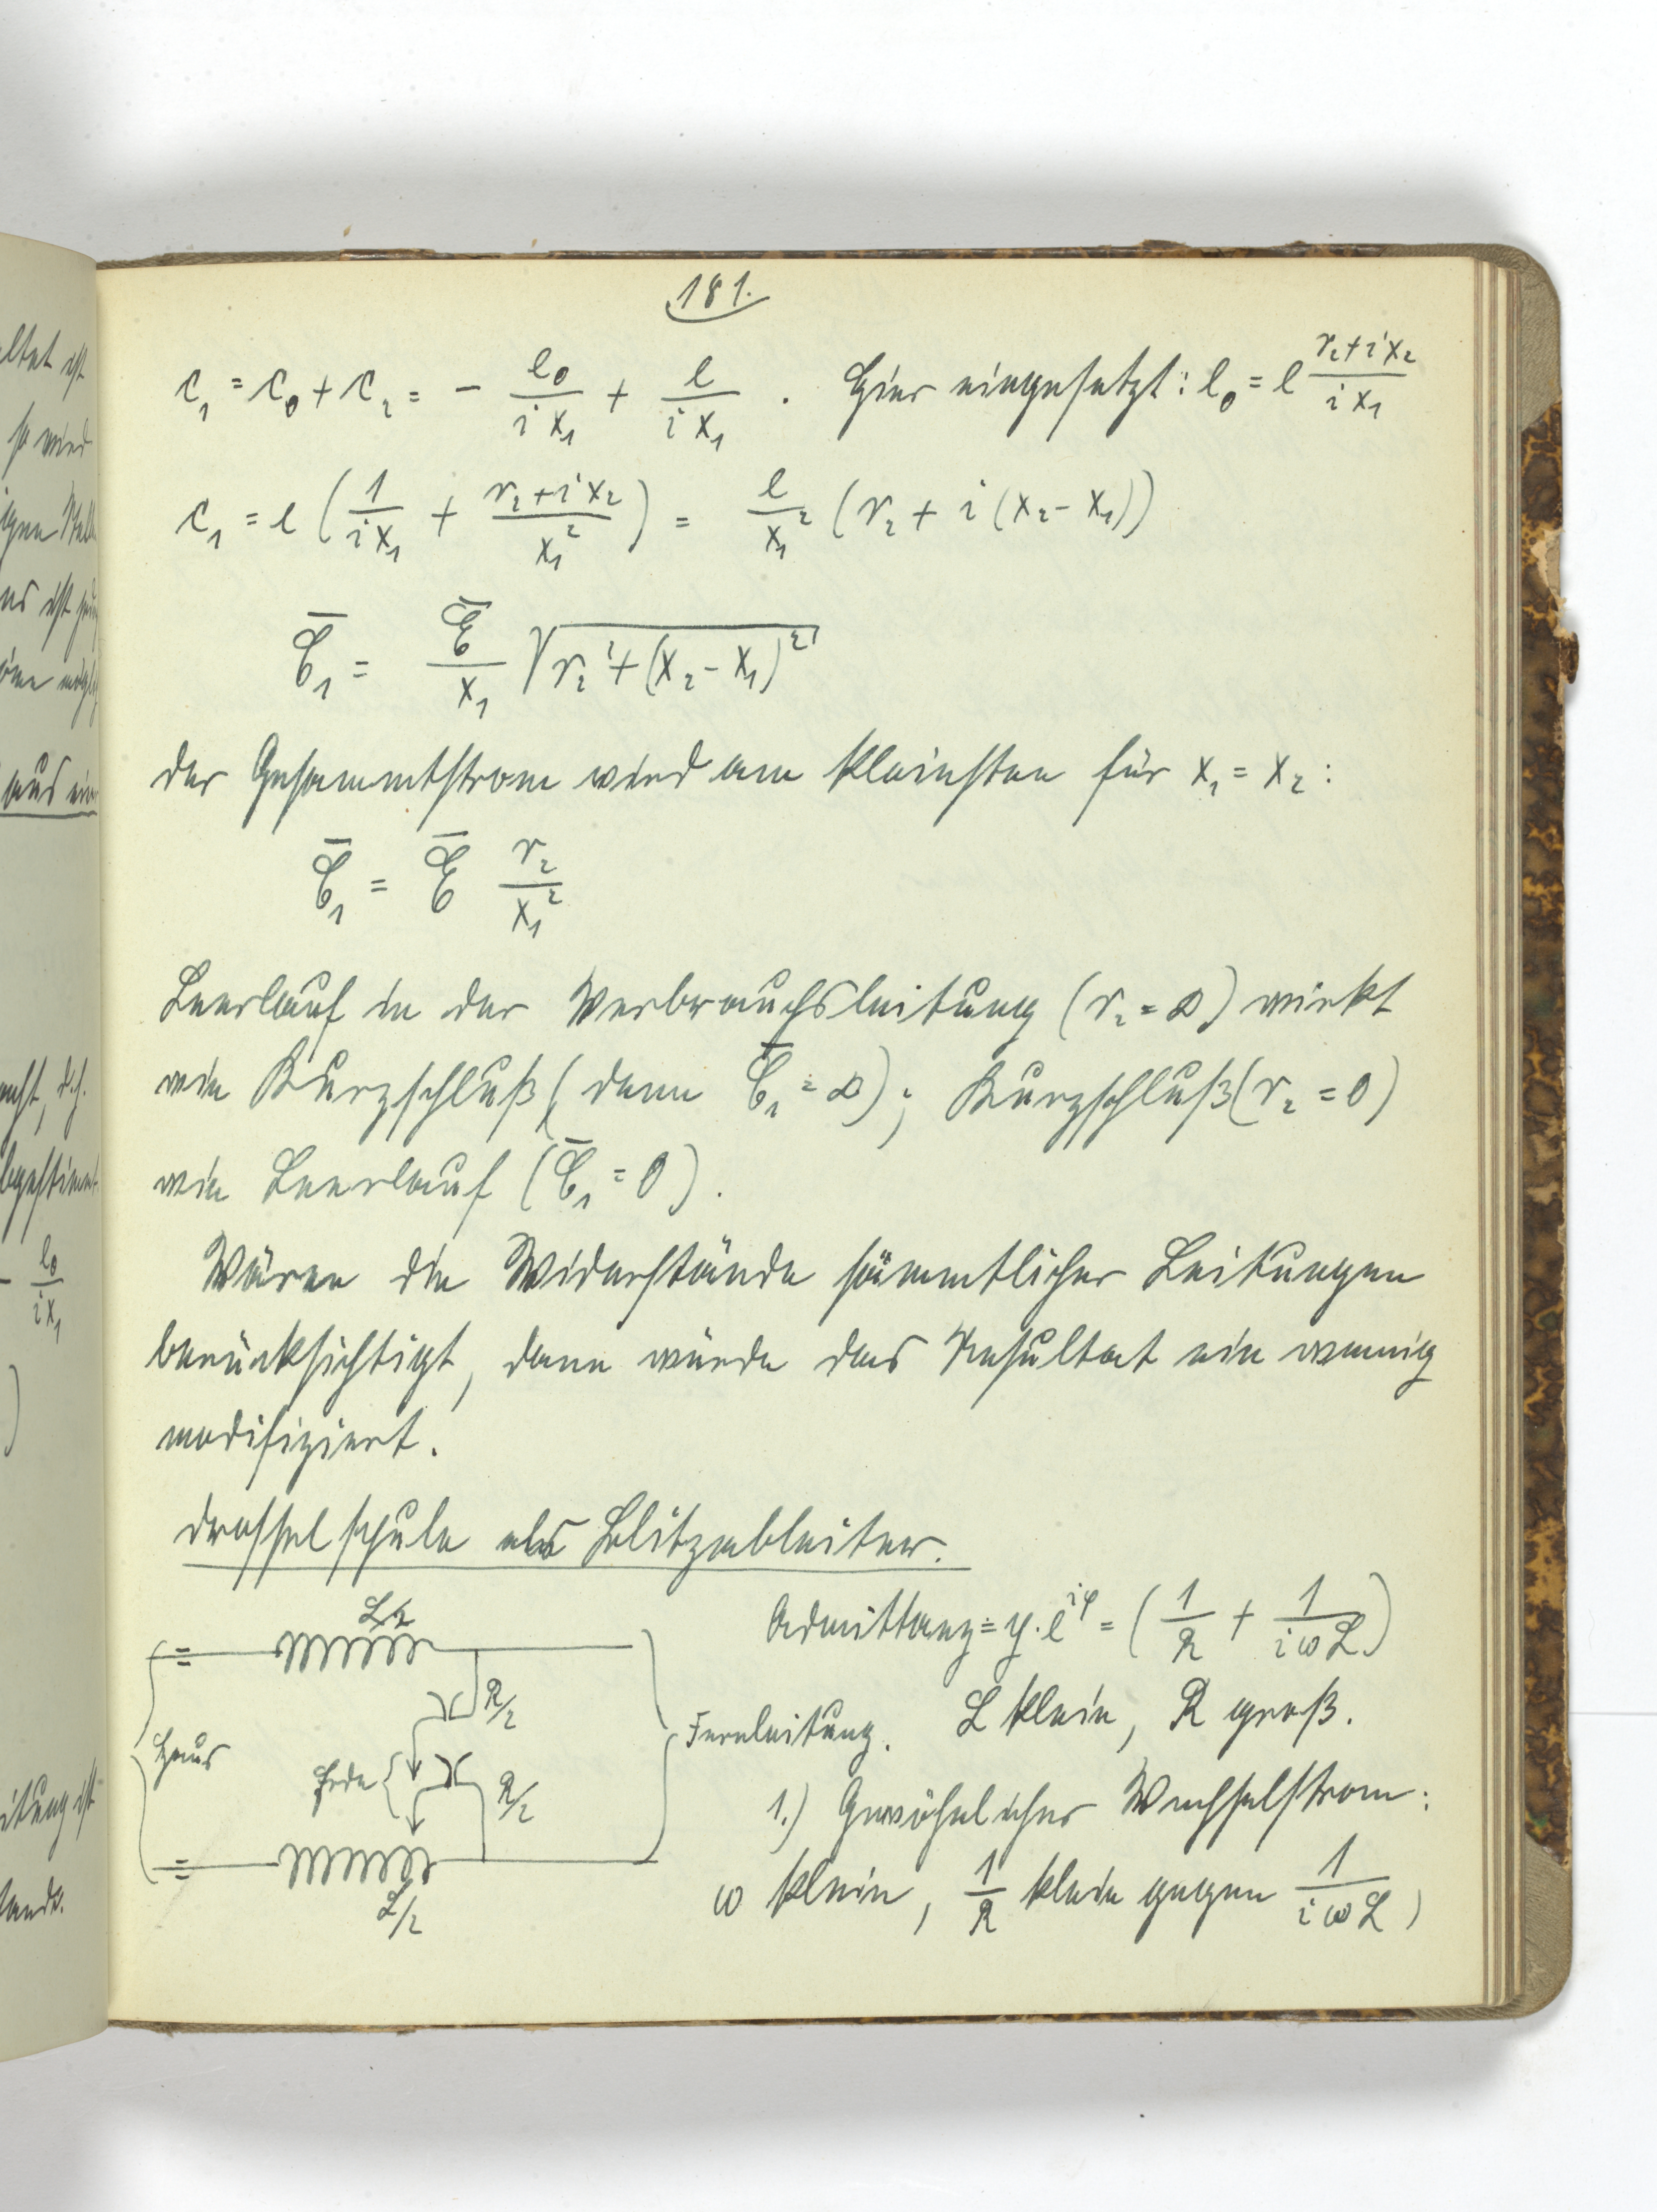 181.
c₁ = c₀ + c₂ = - e₀/(i x₁) + e/(i x₁) . Hier eingesetzt: e₀ = e (r₂+i x₂)/(i x₁)
c₁ = e ( 1/(i x₁) + (r₂+i x₂)/x₁² ) = e/x₁² (r₂ + i (x₂ - x₁))
C̄₁ = Ē/x₁ √(r₂² + (x₂ - x₁)²)
der Gesammtstrom wird am kleinsten für x₁ = x₂ :
C̄₁ = Ē r₂/x₁²
Leerlauf in der Verbrauchsleitung (r₂ = ∞) wirkt
wie Kurzschluß (denn C̄₁ = ∞); Kurzschluß (r₂ = 0)
wie Leerlauf (C̄₁ = 0).
Wären die Widerstände sämmtlicher Leitungen
berücksichtigt, dann würde das Resultat ein wennig
modifiziert.
Drosselspule als Blitzableiter.
L/2
Admittanz = y · e^{iφ} = ( 1/R + 1/(i ω L) )
R/2
Fernleitung. L klein, R groß.
Haus
Erde
R/2
1.) Gewöhnlicher Wechselstrom:
ω klein, 1/R klein gegen 1/(i ω L),
L/2
ltet ist
so wird
igen
ns ist
öne
aus ein
d.h.
- e₀/(i x₁)
)
itung ist